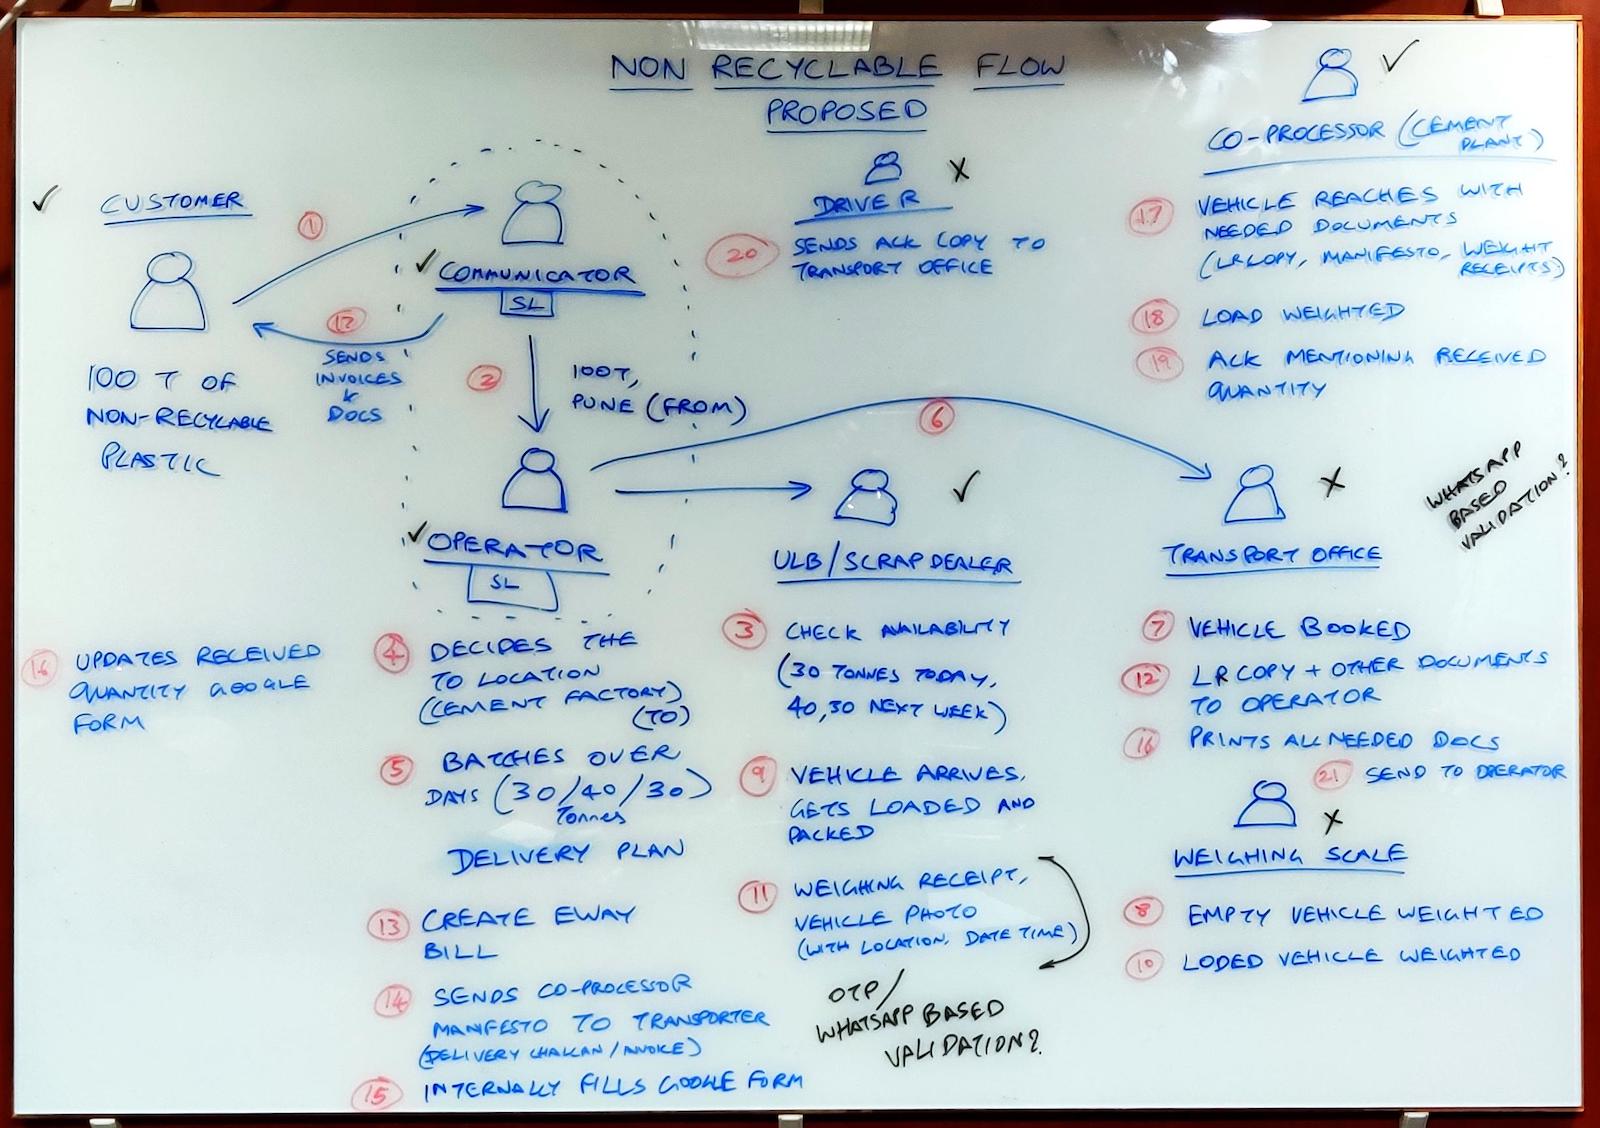 NON RECYCLABLE FLOW
PROPOSED
✓ CUSTOMER
100 T OF
NON-RECYLABLE
PLASTIC
1
17
SENDS
INVOICES
&
DOCS
✓ COMMUNICATOR
SL
2
100T,
PUNE (FROM)
✓ OPERATOR
SL
16 UPDATES RECEIVED
QUANTITY GOOGLE
FORM
4 DECIDES THE
TO LOCATION
(CEMENT FACTORY)
(TO)
5 BATCHES OVER
DAYS (30/40/30)
Tonnes
DELIVERY PLAN
13 CREATE EWAY
BILL
14 SENDS CO-PROCESSOR
MANIFESTO TO TRANSPORTER
(DELIVERY CHALLAN/INVOICE)
15 INTERNALLY FILLS GOOGLE FORM
DRIVER X
20 SENDS ACK COPY TO
TRANSPORT OFFICE
6
✓
ULB/SCRAP DEALER
3 CHECK AVAILABILITY
(30 TONNES TODAY,
40,30 NEXT WEEK)
9 VEHICLE ARRIVES,
GETS LOADED AND
PACKED
11 WEIGHING RECEIPT,
VEHICLE PHOTO
(WITH LOCATION, DATE TIME)
OTP/
WHATSAPP BASED
VALIDATION?
✓
CO-PROCESSOR (CEMENT
PLANT)
17 VEHICLE REACHES WITH
NEEDED DOCUMENTS
(LR COPY, MANIFESTO, WEIGHT
RECEIPTS)
18 LOAD WEIGHTED
19 ACK MENTIONING RECEIVED
QUANTITY
WHATSAPP
BASED
VALIDATION?
X
TRANSPORT OFFICE
7 VEHICLE BOOKED
12 LR COPY + OTHER DOCUMENTS
TO OPERATOR
16 PRINTS ALL NEEDED DOCS
21 SEND TO OPERATOR
X
WEIGHING SCALE
8 EMPTY VEHICLE WEIGHTED
10 LODED VEHICLE WEIGHTED